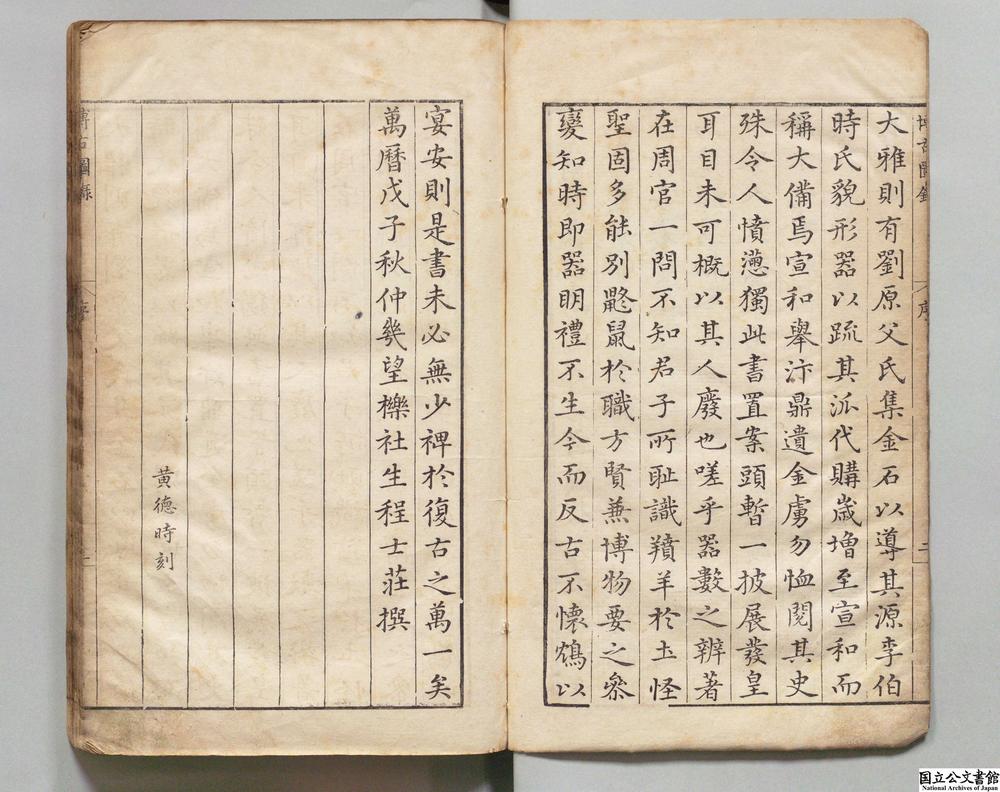 大雅則有劉原父氏集金石以導其源李伯
時氏貌形器以疏其沠代購歳增至宣和而
稱大備焉宣和舉汴鼎遺金虜勿恤閱其史
殊令人憤懣獨此書置案頭暫一披展發皇
耳目未可概以其人廢也嗟乎器數之辨著
在周官一問不知君子所耻識羵羊於土怪
聖固多能別鼮鼠於職方賢兼博物要之叅
變知時即器明禮不生今而反古不懷鴆以
博古圖錄
序
二
宴安則是書未必無少裨於復古之萬一矣
萬曆戊子秋仲幾望櫟社生程士莊撰
黃德時刻
博古圖錄
序
国立公文書館
National Archives of Japan